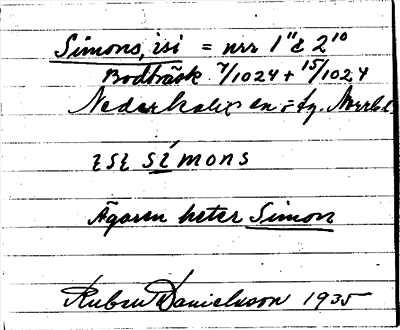 Simons, isi = nrr 1" & 2"
Bodträsk 7/1024 + 15/1024
Nederkalix sn = tg. Norrb.l.
ısı símons
Ägaren heter Simon
Ruben Danielsson 1935